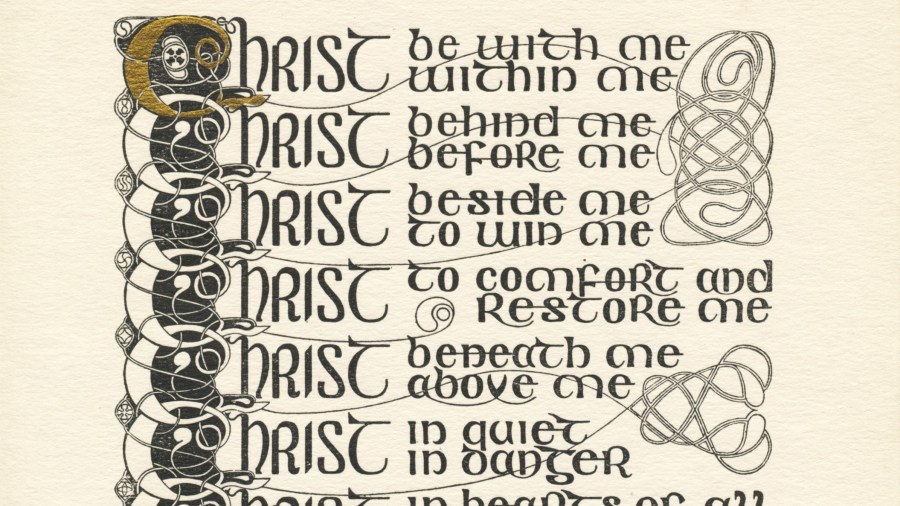 Christ be with me
within me
Christ behind me
before me
Christ beside me
to win me
Christ to comfort and
restore me
Christ beneath me
above me
Christ in quiet
in danger
Christ in hearts of all